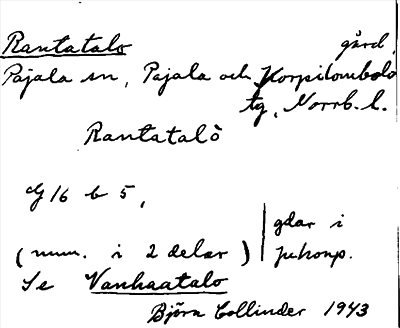 Rantatalo gård,
Pajala sn, Pajala och Korpilombolo
tg, Norrb. l.
Rantatalò
G 16 b 5,
(num. i 2 delar) gdar i
Juhonp.
Se Vanhaatalo
Björn Collinder 1943